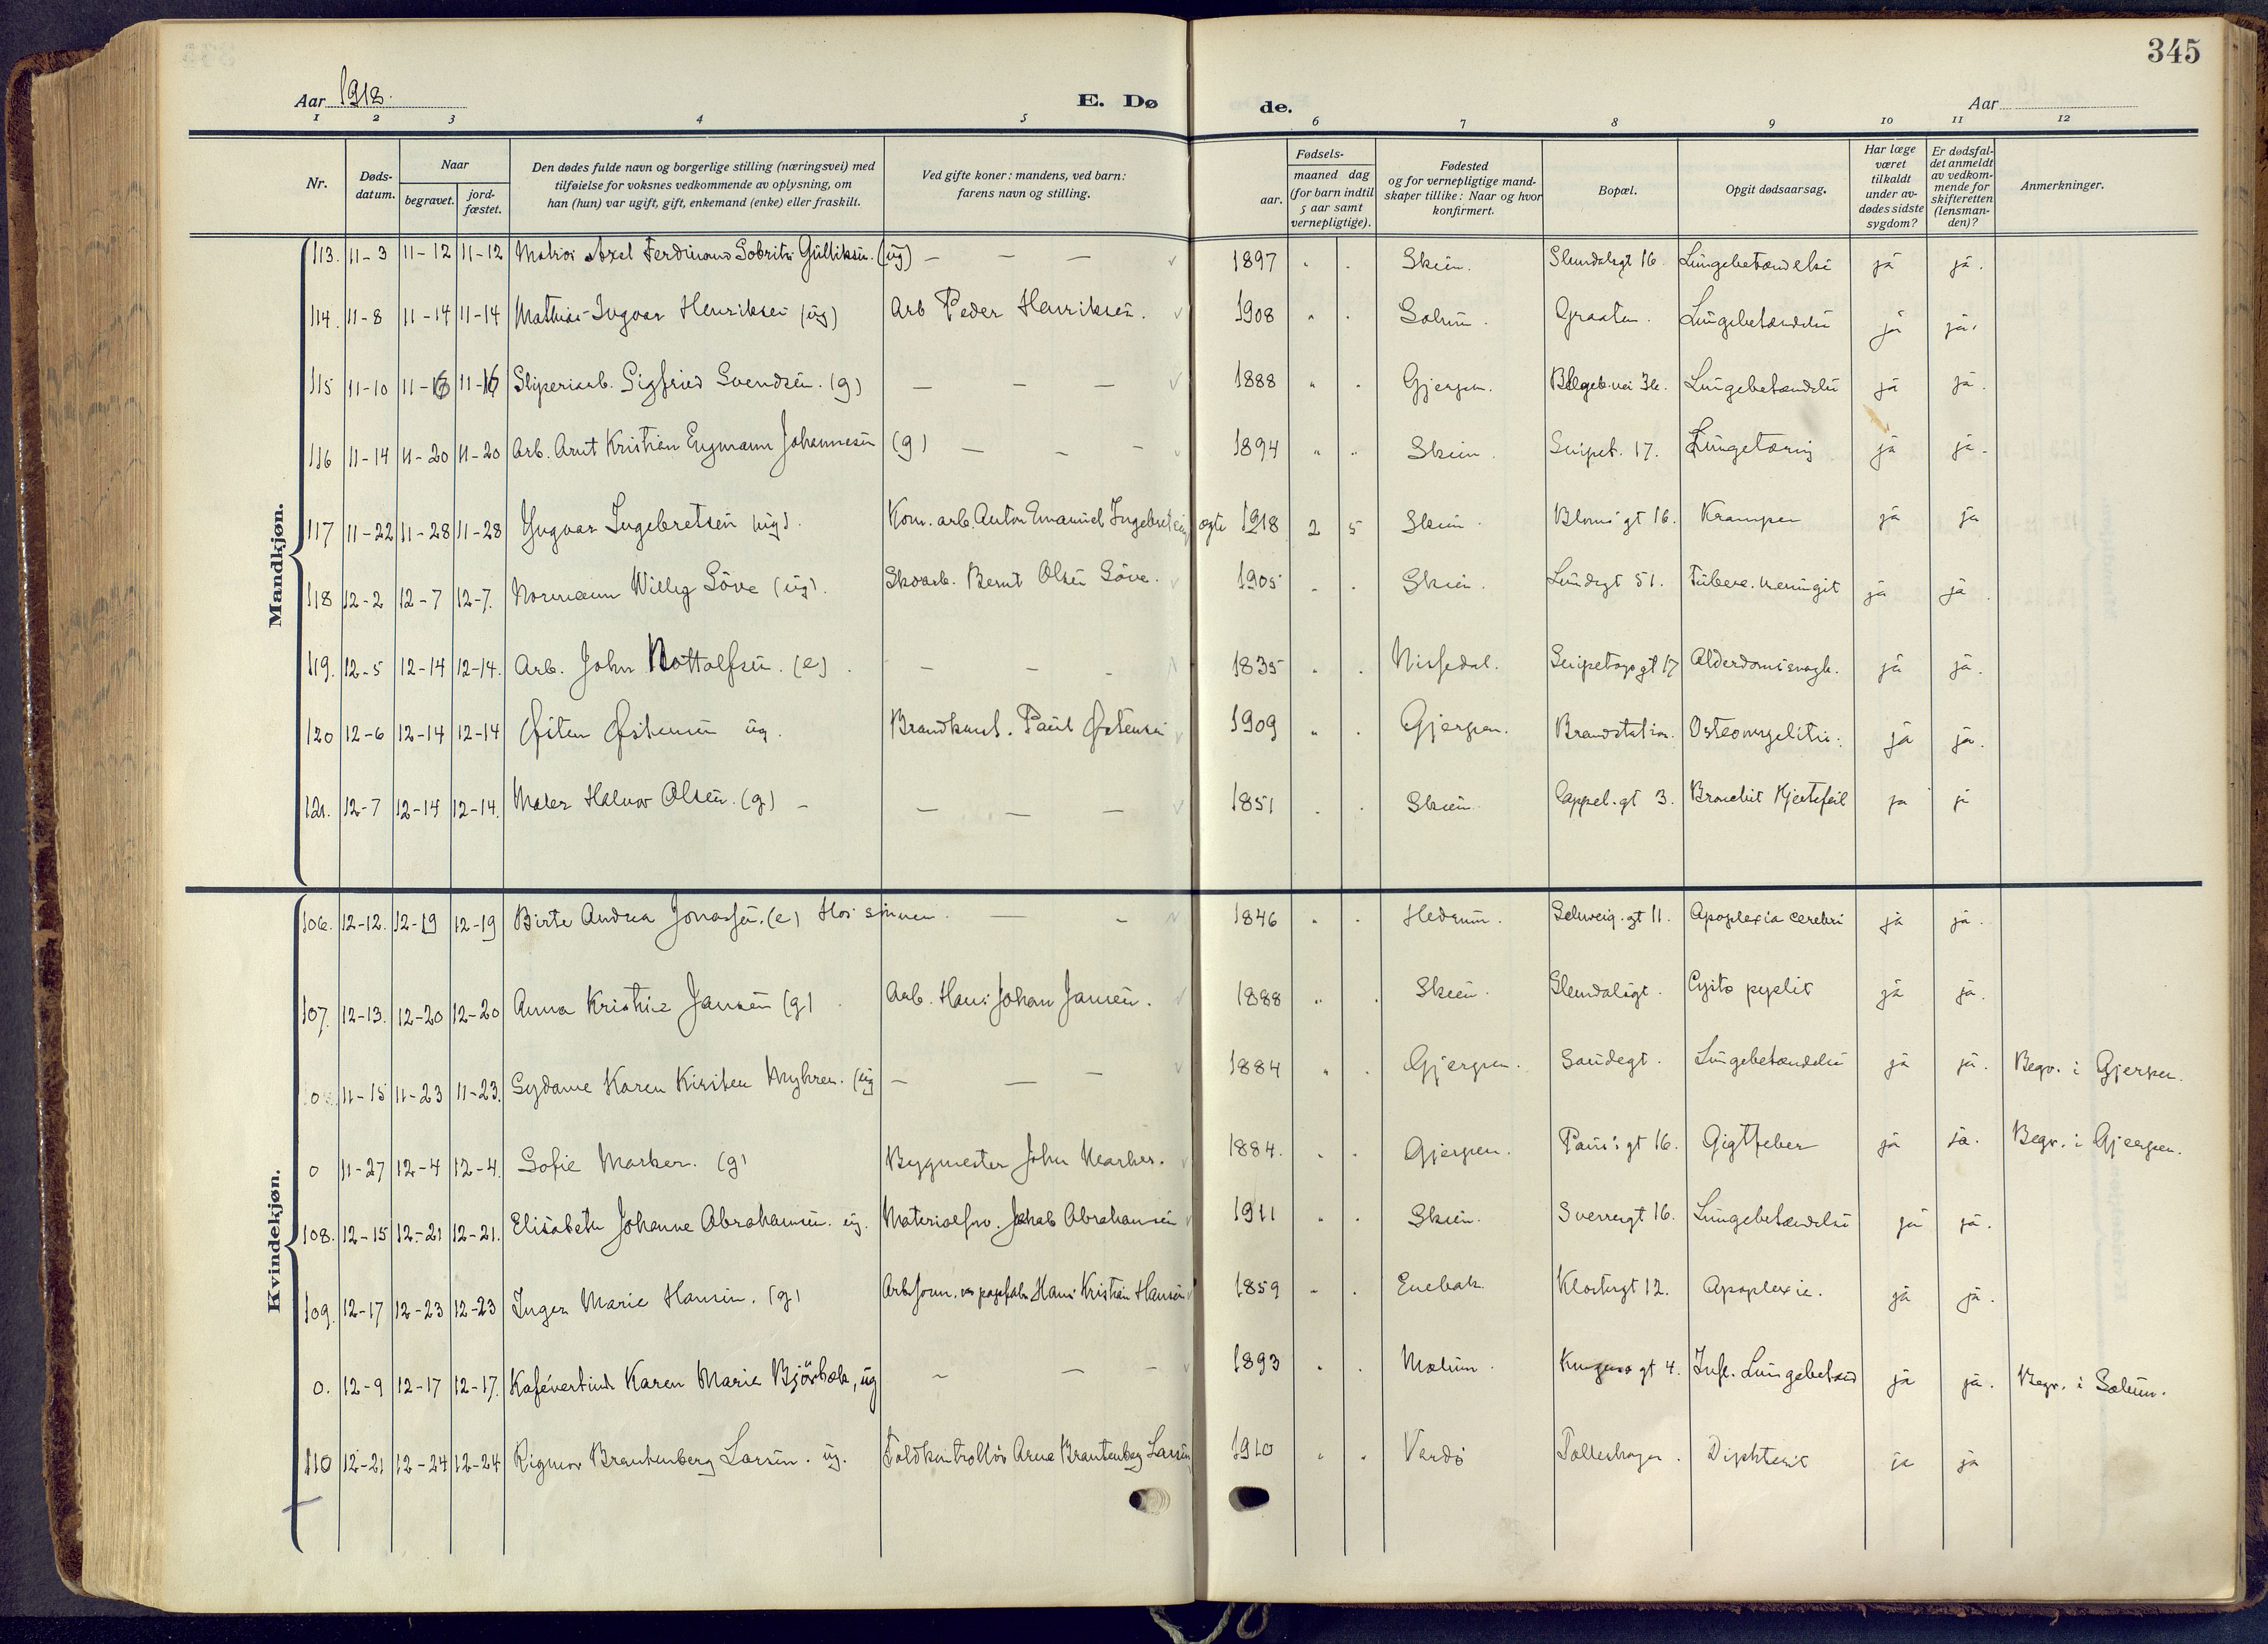 345
Aar 1918.
E. Døde.
Aar
1 2 3 4 5 6 7 8 9 10 11 12
Nr.
Døds-datum.
Naar
begravet.
jord-fæstet.
Den dødes fulde navn og borgerlige stilling (næringsvei) med
tilføielse for voksnes vedkommende av oplysning, om
han (hun) var ugift, gift, enkemand (enke) eller fraskilt.
Ved gifte koner: mandens, ved barn:
farens navn og stilling.
Fødsels-
aar.
maaned dag
(for barn indtil
5 aar samt
vernepligtige).
Fødested
og for vernepligtige mand-
skaper tillike: Naar og hvor
konfirmert.
Bopæl.
Opgit dødsaarsag.
Har læge
været
tilkaldt
under av-
dødes sidste
sygdom?
Er dødsfal-
det anmeldt
av vedkom-
mende for
skifteretten
(lensman-
den)?
Anmerkninger.
Mandkjøn.
113. 11-3 11-12 11-12 Matros Axel Ferdinand Gulliksen. (ug) — — — 1897 Skien. 16 Lungebetændelse ja ja.
114. 11-8 11-14 11-14 Mathias Ingvar Henriksen (ug) Arb Peder Henriksen. 1908 Solum. Graaten. Lungebetændelse ja ja.
115 11-10 11-16 11-16 Sliperiarb. Sigfried Svendsen. (g) — — — 1888 Gjerpen. Lungebetændelse ja ja.
116 11-14 11-20 11-20 Arb. Arnt Kristian Engmann Johannesen (g) — — — 1894 Skien. Snipet. 17. Lungetæring ja ja.
117 11-22 11-28 11-28 Yngvar Ingebretsen (ug). Kom. arb. Anton Emanuel Ingebretsen ægte 1918 2 5 Skien. Bloms gt 16. Kramper ja ja
118 12-2 12-7 12-7. Normann Willy Söve (ug). Skoarb. Bernt Olsen Söve. 1905 Skien. Lundegt 51. Tuberc. meningit ja ja.
119. 12-5 12-14 12-14. Arb. John Nottolfsen. (e). — — - 1835 Nissedal. Snipetorpgt 17 Alderdomssvagh. ja ja.
120 12-6 12-14 12-14 Østen Østensen ug. Brandkonst. Paul Østensen 1909 Gjerpen. Brandstation. Osteomyelitis. ja ja.
121. 12-7 12-14 12-14. Maler Halvor Olsen. (g) — — — — 1851 Skien. Cappel. gt 3. Bronchit Hjertefeil ja ja
Kvindekjøn.
106. 12-12. 12-19 12-19 Birte Andrea Jonassen. (e) Hos sönnen. — — 1846 Hedrum. Schweig. gt 11. Apoplexia cerebri ja ja.
107. 12-13. 12-20 12-20 Anna Kristine Jansen (g). Arb. Hans Johan Jansen. 1888 Skien. Cysto pyelit ja ja.
0 11-15 11-23 11-23. Sydame Karen Kirsten Myhren. (ug — — — 1884 Gjerpen. Lungebetændelse ja ja. Begr. i Gjerpen.
0 11-27 12-4 12-4. Sofie Marker. (g) Bygmester John Marker. 1884. Gjerpen. Paus' gt 16. Gigtfeber ja ja. Begr. i Gjerpen.
108. 12-15 12-21 12-21. Elisabeth Johanne Abrahamsen. ug. Materialforv. Jakob Abrahamsen 1911 Skien. Sverresgt 16. Lungebetændelse ja ja.
109. 12-17 12-23 12-23 Inger Marie Hansen. (g) Arbform. Hans Kristian Hansen 1859 Enebak. Klostergt 12. Apoplexie. ja ja.
0. 12-9 12-17 12-17. Kafévertinde Karen Marie Björbæk, ug — — — 1893 Mælum. Kongensgt 4. Infl. Lungebetænd ja ja. Begr. i Solum.
110 12-21 12-24 12-24 Rigmor Brantenberg Larsen. ug. Toldkontrollör Arne Brantenberg Larsen 1910 Vardö Diphterie ja ja